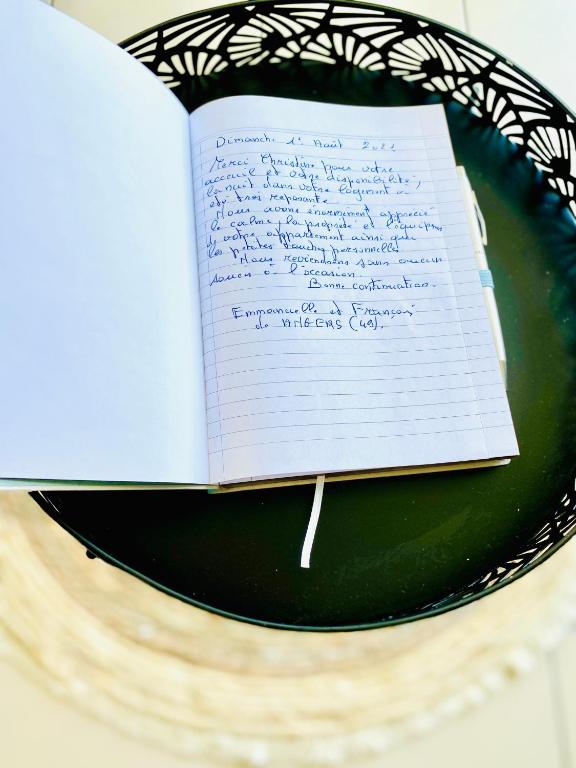 Dimanche 1er Août 2021
Merci Christine pour votre
accueil et votre disponibilité,
la nuit dans votre logement a
été très reposante.
Nous avons énormément apprécié
le calme, la propreté et l'équipement
de votre appartement ainsi que
les petites touches personnelles.
Nous reviendrons sans aucun
soucis à l'occasion.
Bonne continuation.
Emmanuelle et François
de ANGERS (49).